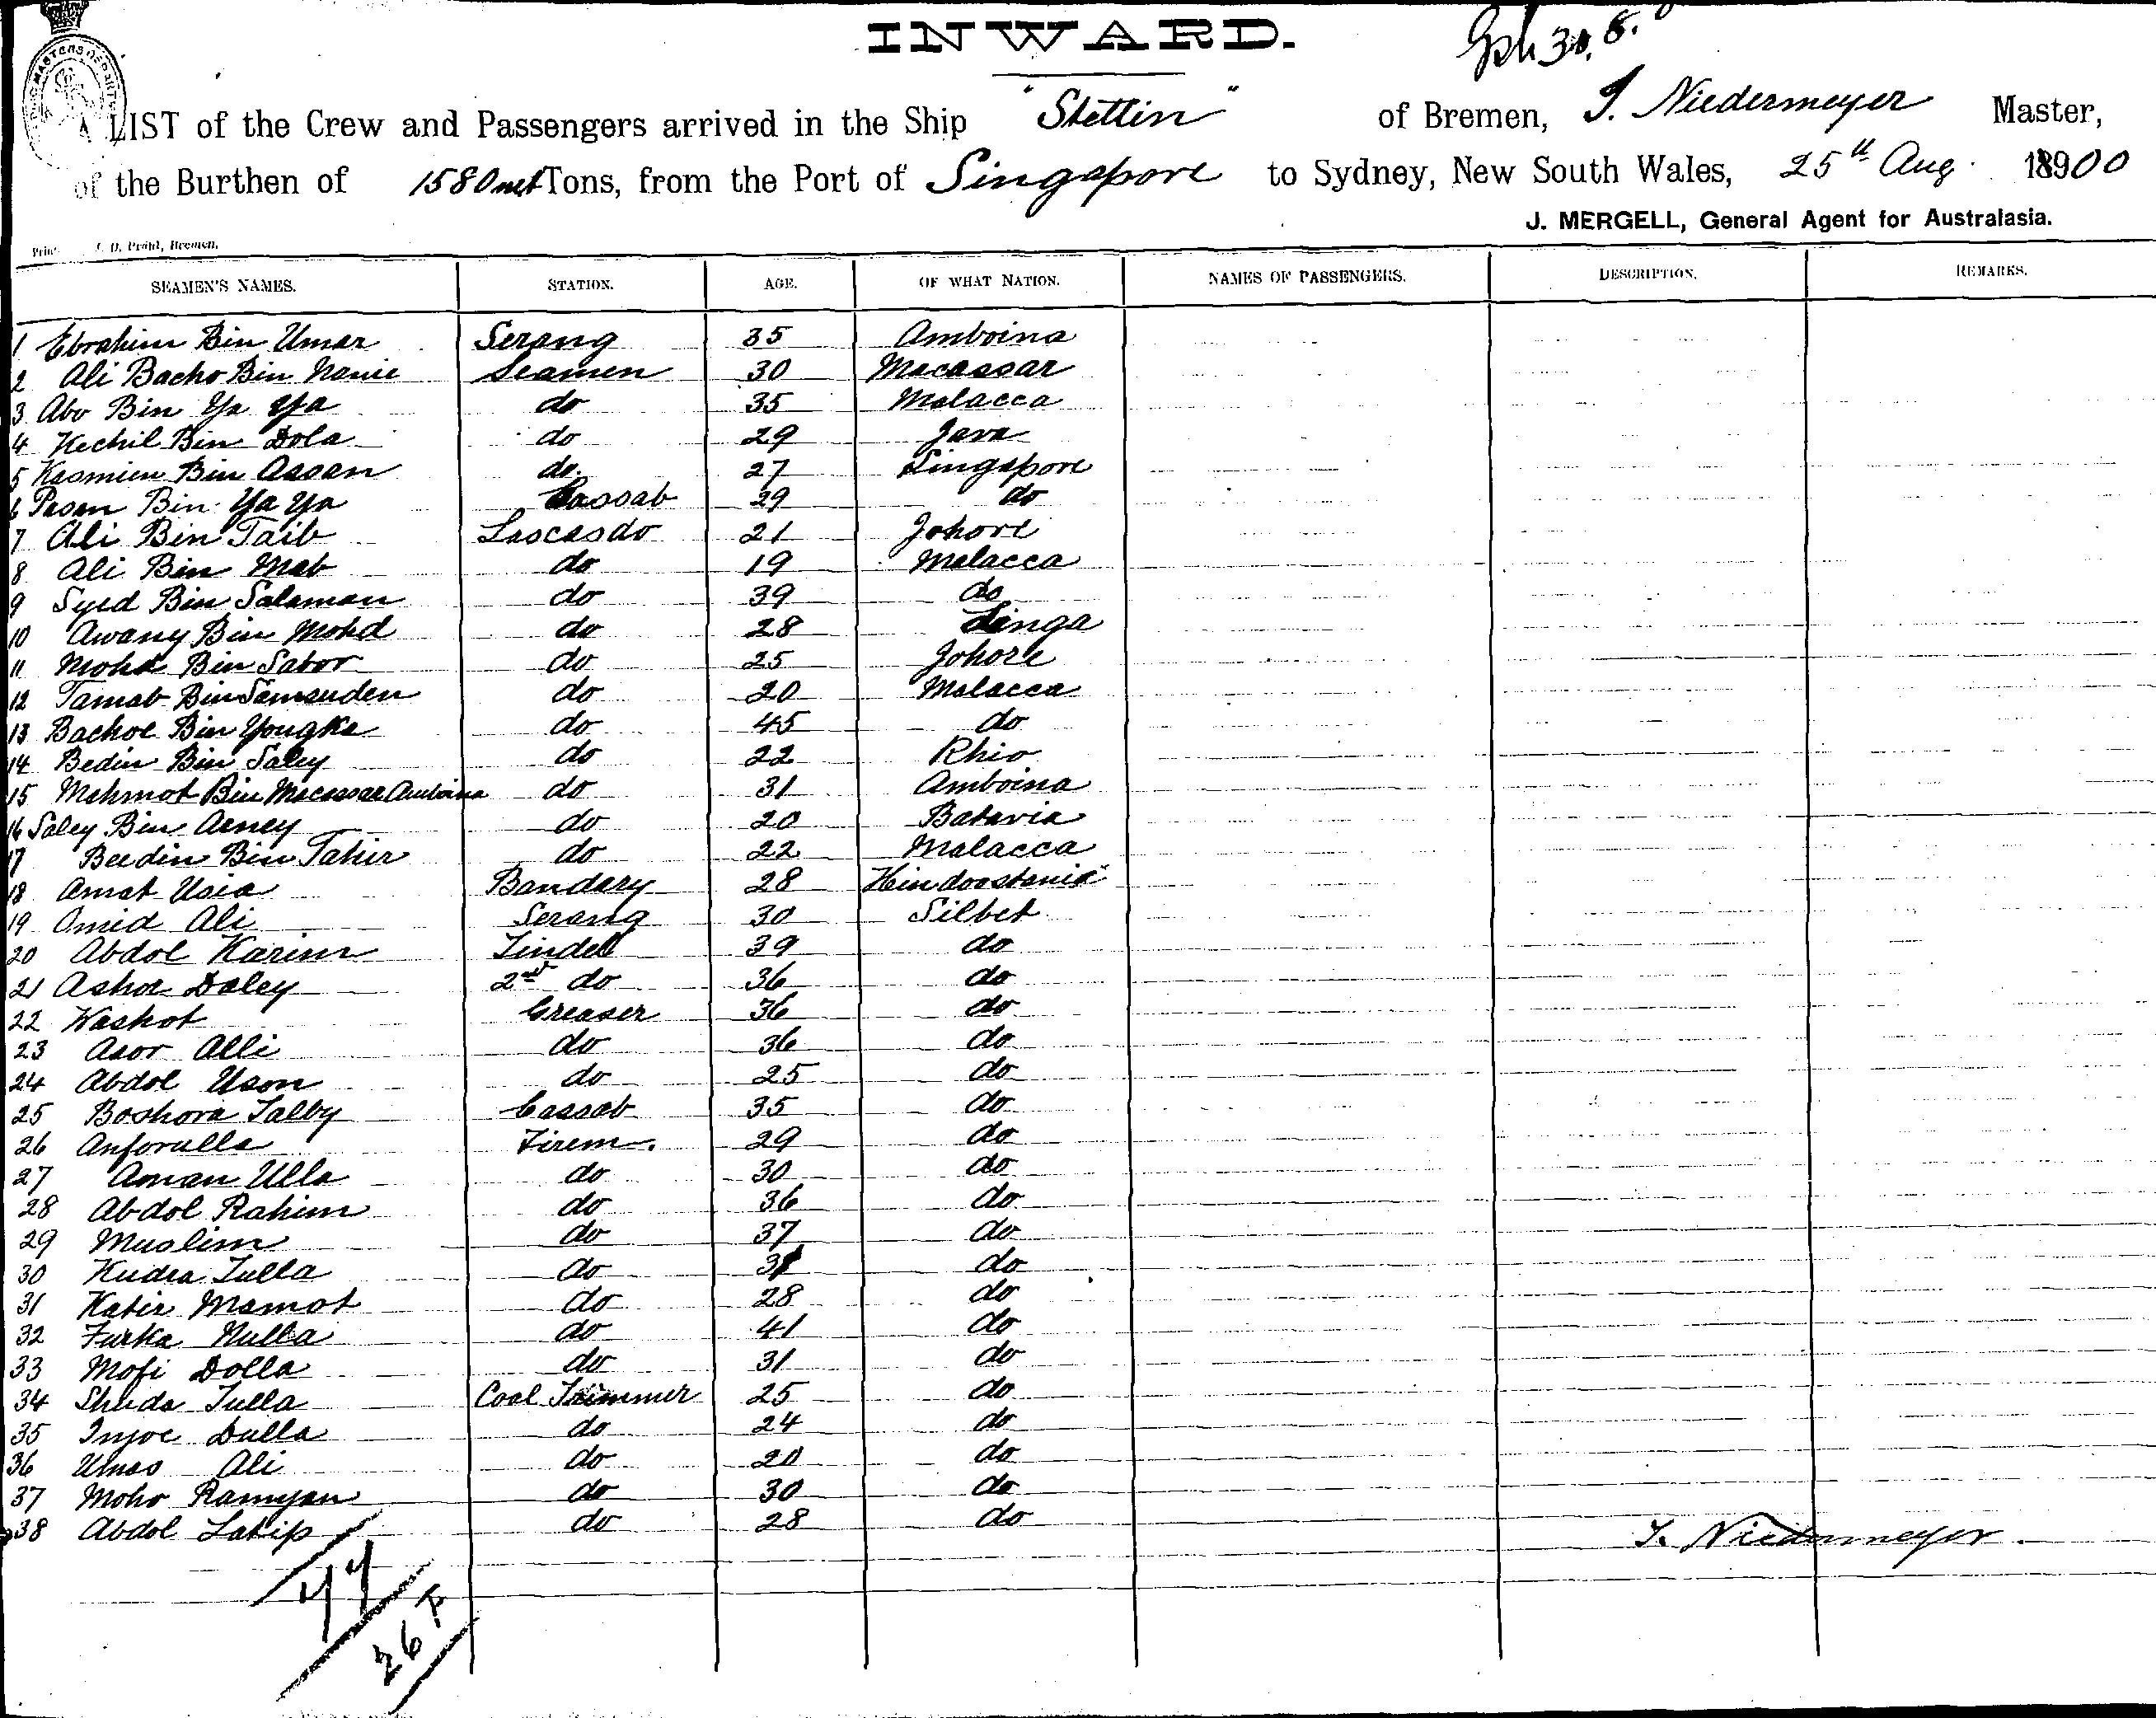 INWARD.
A LIST of the Crew and Passengers arrived in the Ship "Stettin" of Bremen, J. Niedermeyer Master,
of the Burthen of 1580 net Tons, from the Port of Singapore to Sydney, New South Wales, 25th Aug. 18900
J. MERGELL, General Agent for Australasia.
SEAMEN'S NAMES. STATION. AGE. OF WHAT NATION. NAMES OF PASSENGERS. DESCRIPTION. REMARKS.
1 Ebrahim Bin Umar Serang 35 Amboina
2 Ali Bacho Bin Nanie Seamen 30 Macassar
3 Abo Bin Ya Ya do 35 Malacca
4 Kechil Bin Dola do 29 Java
5 Kasmien Bin Assan do. 27 Singapore
6 Pasan Bin Ya Ya Cassab 29 do
7 Ali Bin Taib Lascasdo 21 Johore
8 Ali Bin Mat do 19 Malacca
9 Syed Bin Salaman do 39 do
10 Awang Bin Mohd do 28 Linga
11 Mohd Bin Sabor do 25 Johore
12 Tamab Bin Samsuden do 20 Malacca
13 Bachoe Bin Yongka do 45 do
14 Bedin Bin Saley do 22 Rhio
15 Mahmot Bin Macassar Amboina do 31 Amboina
16 Saley Bin Arney do 20 Batavia
17 Beedin Bin Tahir do 22 Malacca
18 Amat Usia Bandary 28 Hindoostania
19 Omid Ali Serang 30 Silbet
20 Abdol Karim Tindel 39 do
21 Ashoe Daley 2nd do 36 do
22 Washot Greaser 36 do
23 Asor Alli do 36 do
24 Abdol Uson do 25 do
25 Boshora Talby Cassab 35 do
26 Anforulla Firem. 29 do
27 Aman Ulla do 30 do
28 Abdol Rahim do 36 do
29 Muslim do 37 do
30 Kudra Tulla do 31 do
31 Katir Mamot do 28 do
32 Furka Nulla do 41 do
33 Mofi Dolla do 31 do
34 Shuda Tulla Coal Trimmer 25 do
35 Injoe Dulla do 24 do
36 Umas Ali do 20 do
37 Moho Ramyan do 30 do
38 Abdol Latip do 28 do
J. Niedermeyer.
77
26 F